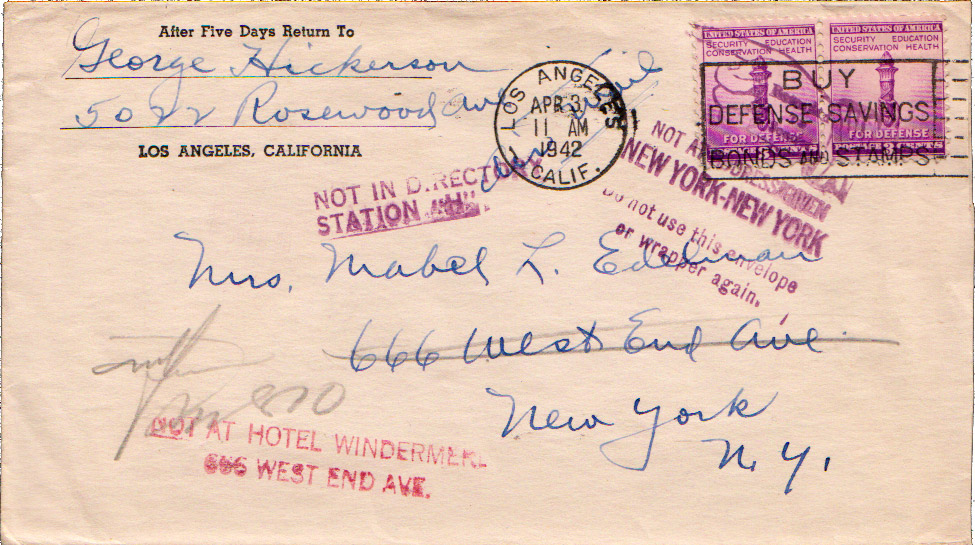 After Five Days Return To
George Hickerson
5022 Rosewood Ave
LOS ANGELES, CALIFORNIA
LOS ANGELES
APR 3
11 AM
1942
CALIF.
UNITED STATES OF AMERICA
SECURITY EDUCATION
CONSERVATION HEALTH
FOR DEFENSE
UNITED STATES OF AMERICA
SECURITY EDUCATION
CONSERVATION HEALTH
FOR DEFENSE
BUY
DEFENSE SAVINGS
BONDS AND STAMPS
NOT IN DIRECTORY
STATION "H"
NOT AT ADDRESS GIVEN
NEW YORK-NEW YORK
Do not use this envelope
or wrapper again.
Mrs. Mabel L. Edelman
666 West End Ave.
New York
N.Y.
870
NOT AT HOTEL WINDERMERE
666 WEST END AVE.